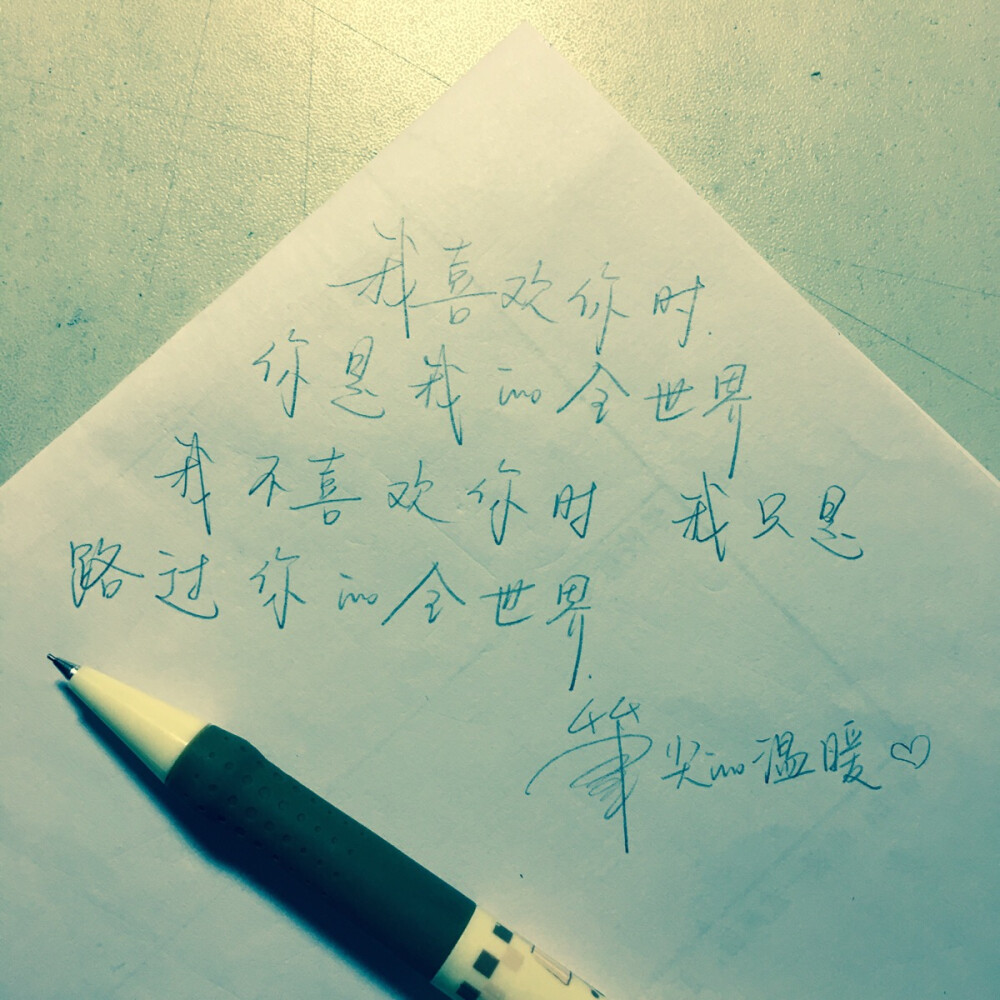 我喜欢你时.
你是我的全世界
我不喜欢你时 我只是
路过你的全世界.
笔尖的温暖♡